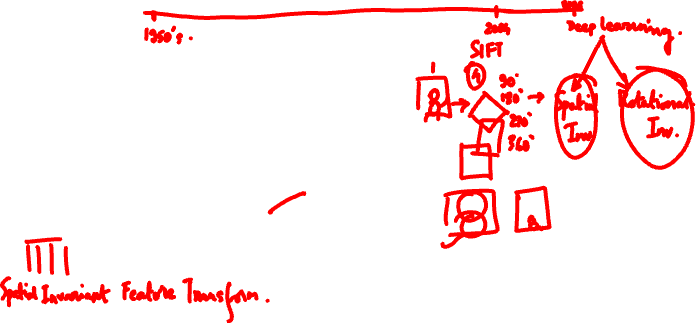 1960's.
2004
Deep learning.
SIFT
90°
180°
270°
360°
Spatial
Inv.
Rotational
Inv.
Spatial Invariant Feature Transform.